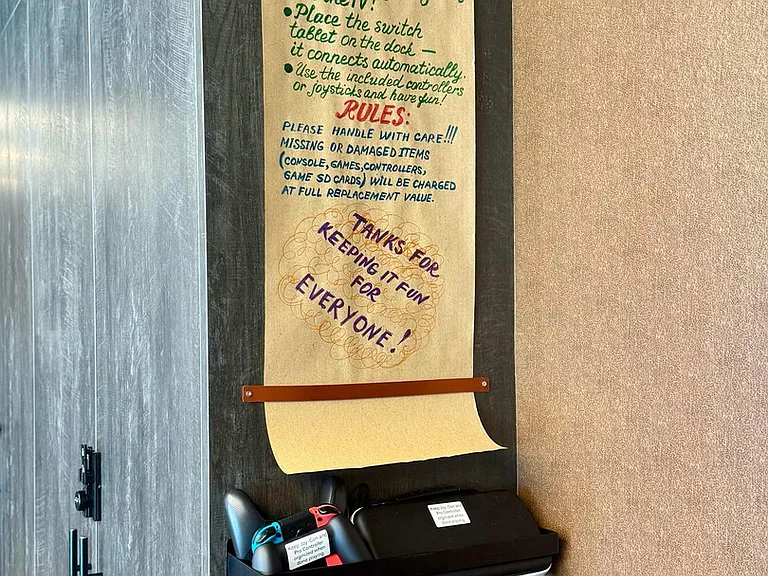 the TV!
• Place the switch
tablet on the dock —
it connects automatically.
• Use the included controllers
or joysticks and have fun!
RULES:
PLEASE HANDLE WITH CARE!!!
MISSING OR DAMAGED ITEMS
(CONSOLE, GAMES, CONTROLLERS,
GAME SD CARDS) WILL BE CHARGED
AT FULL REPLACEMENT VALUE.
TANKS FOR
KEEPING IT FUN
FOR
EVERYONE!
Keep Joy-Con and
Pro Controller
organized when
done playing
Keep Joy-Con and
Pro Controller
organized when
done playing